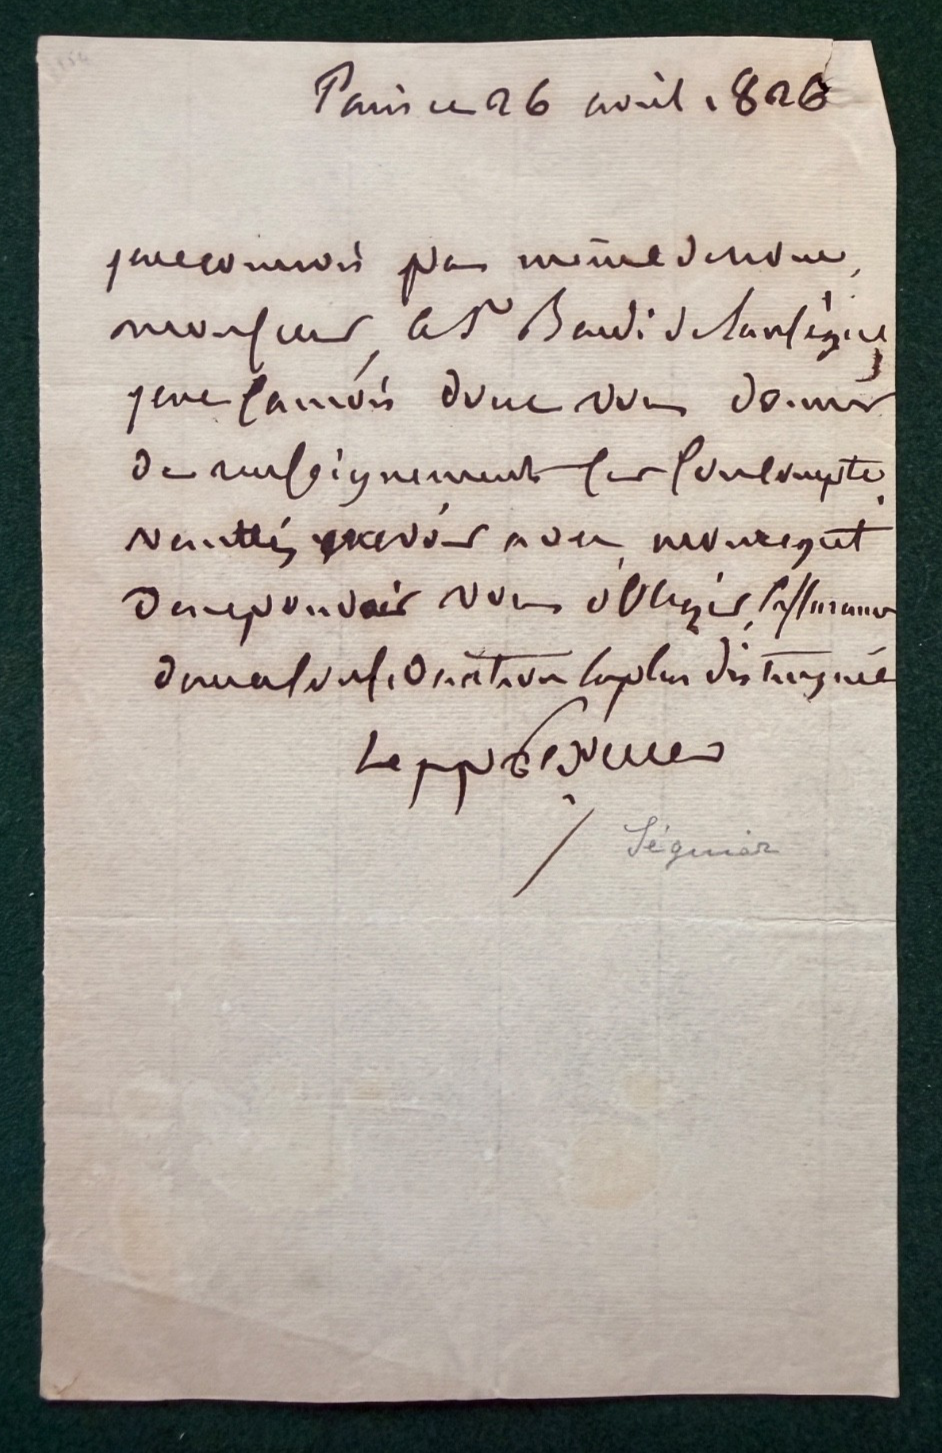 Paris ce 26 avril 1826
je ne connois pas même de nom,
monsieur, le Sr Baudi de
je ne saurois donc vous donner
de renseignements sur son compte.
veuillés recevoir avec mon regret
de ne pouvoir vous obliger, l'assurance
de ma considération la plus distinguée
Le pp Séguier
Séguier